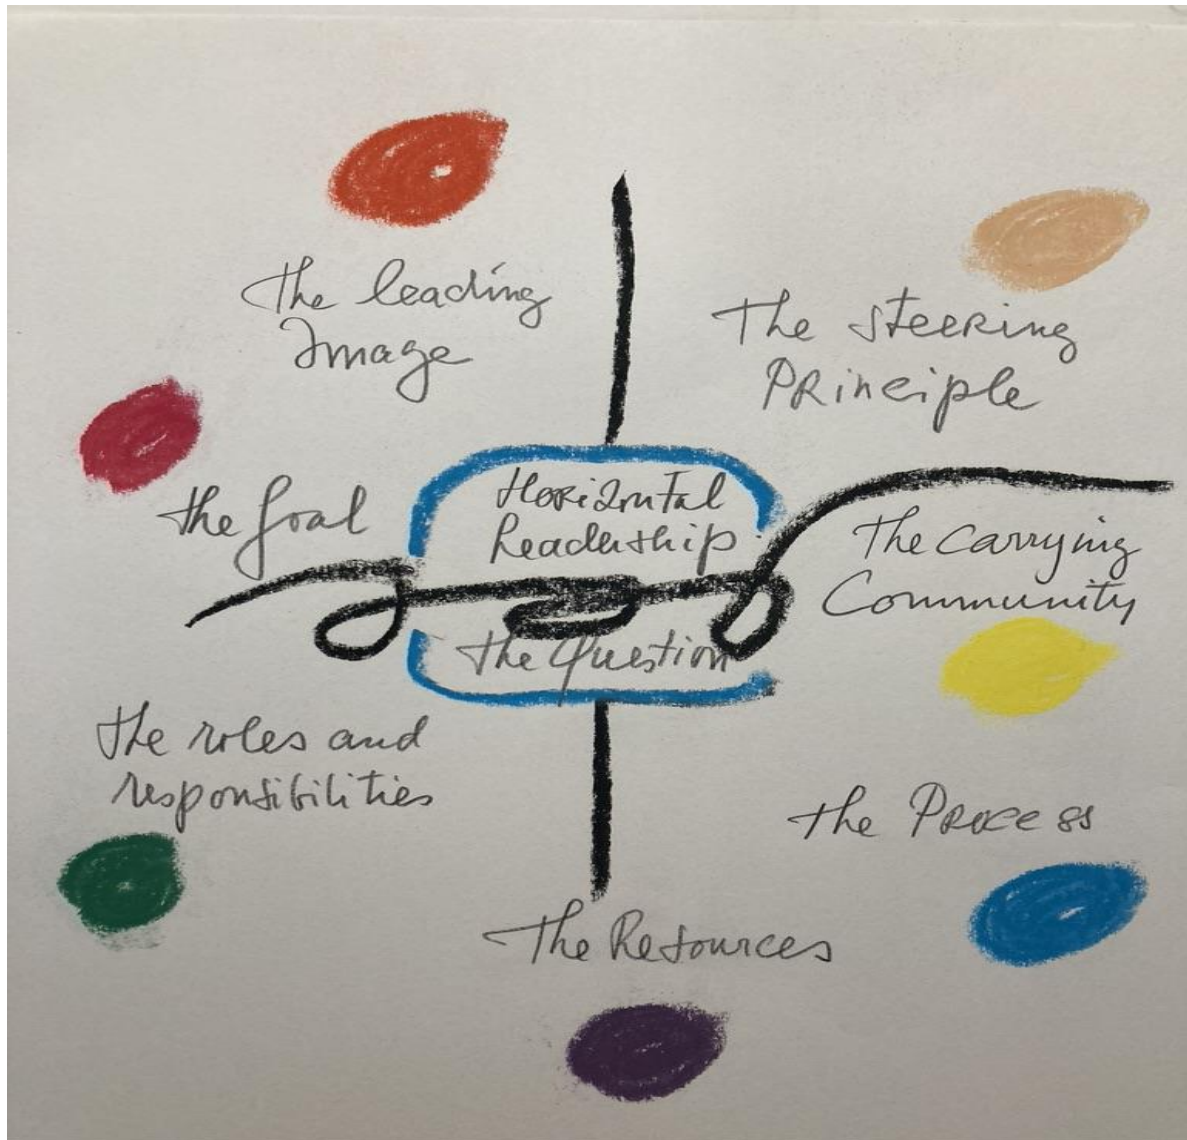 The leading
Image
The steering
Principle
the Goal
Horizontal
Leadership
The Carrying
Community
the Question
the roles and
responsibilities
the Process
The Resources